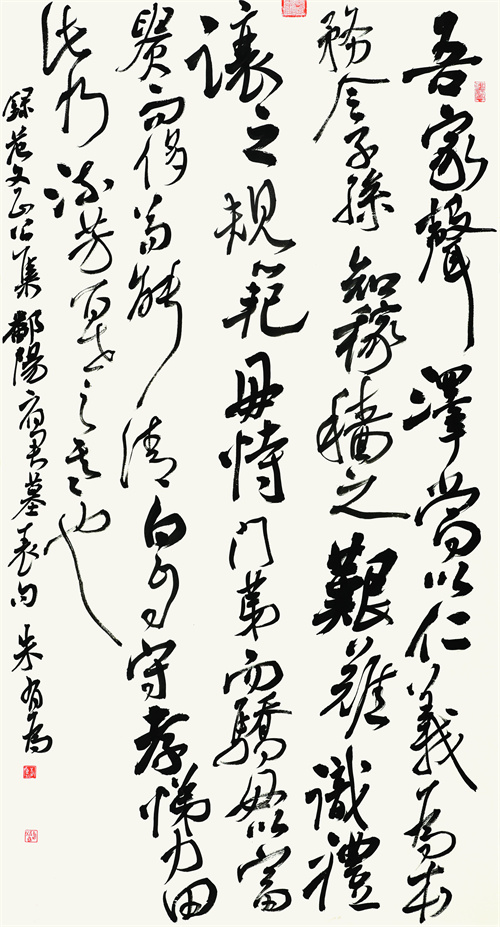 吾家聲澤當以仁義為本
務令子孫知稼穡之艱難識禮
讓之規範毋恃門第而驕毋以富
貴而侈苟能清白自守孝悌力田
乃流芳百世之基也
錄范文正公集鄱陽府君墓表句 朱有為